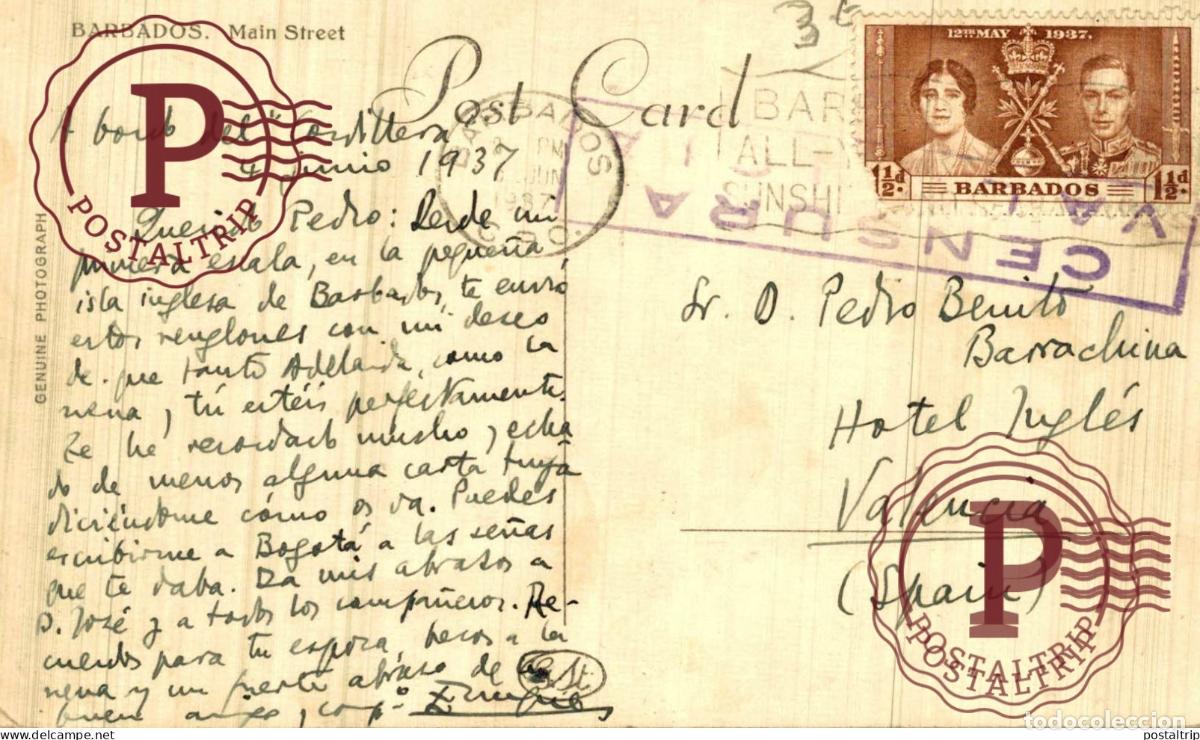 BARBADOS. Main Street
Post Card
3
12TH MAY 1937.
1½d. BARBADOS 1½d.
BARBADOS
PM
JUN
1937
G.P.O.
BAR
ALL-Y
SUNSHI
CENSURA
VAL
GENUINE PHOTOGRAPH
A bordo del "Cordillera
4 Junio 1937
Querido Pedro: Desde mi
primera escala, en la pequeña
isla inglesa de Barbados, te envío
estos renglones con mi deseo
de que tanto Adelaida, como la
nena, tú estéis perfectamente.
Te he recordado mucho, y echa
do de menos alguna carta tuya
diciéndome cómo os va. Puedes
escribirme a Bogotá a las señas
que te daba. Da mis abrazos a
D. José y a todos los compañeros. Re-
cuerdos para tu esposa, besos a la
nena y un fuerte abrazo de
buen amigo,
Sr. D. Pedro Benito
Barrachina
Hotel Inglés
Valencia
(Spain)
P
POSTALTRIP
P
POSTALTRIP
POSTALTRIP
todocoleccion
www.todocoleccion.net
postaltrip